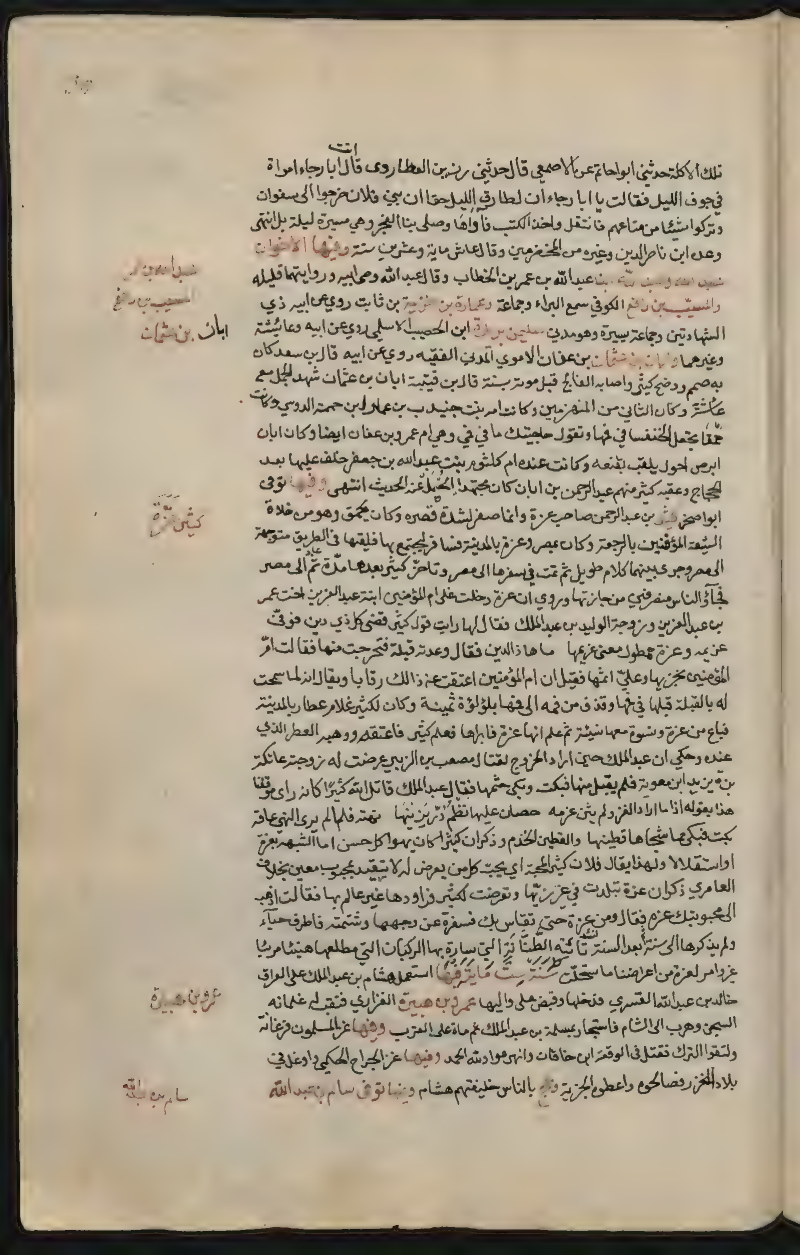 اتت
تلك الاكلة حدثني ابو حاتم عن الاصمعي قال حدثني رزين العطاردي قال ابا رجاء امراة
في جوف الليل فقالت يا ابا رجاء ان لطارق الليل حقا ان بني فلان خرجوا الى سفوان
وتركوا شيئا من متاعهم فانتقل واخذ الكتب فاداها وصلى بنا الفجر وهي مسيرة ليلة بل انتهى
وعده ابن ناصر الدين وغيره من المخضرمين وقال عاش ماية وعشرين سنة وفيها الاخوان
عبد الله بن عمر بن الخطاب وقال عبد الله وصى ابيه وروايتهما قليله
والمسيب بن رافع الكوفي سمع البراء وجماعة وعمارة بن خزيمة بن ثابت روى عن ابيه ذي
الشهادتين وجماعة يسيرة وهو مدني سليمن بن بريدة ابن الحصيب الاسلمي روى عن ابيه وعائشة
وغيرهما وابان بن عثمان بن عفان الاموي المدني الفقيه روى عن ابيه قال بن سعد كان
به صمم ووضح كثير واصابه الفالج قبل موته بسنة قال بن قتيبة ابان بن عثمان شهد الجمل مع
عائشة وكان الثاني من المنهزمين وكانت امه بنت جنيدب بن عمرو ابن حممة الدوسي وكانت
حمقا تجعل الخنفسا في فمها وتقول حاجيتك ما في في وهي ام عمرو بن عفان ايضا وكان ابان
ابرص احول يلقب بقيعه وكانت عنده ام كلثوم بنت عبد الله بن جعفر خلف عليها بعد
الحجاج وعقبه كثير منهم عبد الرحمن بن ابان كان مجتهدا الحديث انتهى وفيها توفي
ابو صخر كثير بن عبد الرحمن صاحب عزة وانما صغر لشدة قصره وكان يحمق وهو من غلاة
الشيعة المؤقنين بالرجعة وكان بمصر وعزة بالمدينة فسافر ليجتمع بها فلقيها في الطريق متوجهة
الى مصر وجرى بينهما كلام طويل ثم تمت في سفرها الى مصر وتاخر كثير بعدها مدة ثم عاد الى مصر
فجاؤا الناس منصرفين من جنازتها وروي ان عزة دخلت على ام المؤمنين ابنة عبد العزيز اخت عمر
بن عبد العزيز وزوجة الوليد بن عبد الملك فقال لها رايت قوله كثير قضى كل ذي دين فوفى
غريمه وعزة ممطول معنى غريمها ما هذا الدين فقال وعدته قبلة فتحرجت منها فقالت ام
المؤمنين نجزيها وعلي اثمها فقيل ان ام المؤمنين اعتقت عن ذالك رقابا ويقال انه لما سمحت
له بالقبلة قبلها في فمها وقذف من فمه الى فمها بلؤلؤة ثمينة وكان لكثير غلام عطار بالمدينة
فباع من عزة ونسوة معها نسيئة ثم علم انها عزة فابراها فعلم كثير فاعتقه ووهبه العطر الذي
عنده وحكي ان عبد الملك حين اراد الخروج لقتال مصعب بن الزبير عرضت له زوجته عاتكة
بنة يزيد ابن معوية فلم يقبل منها فبكت وبكى حشمها فقال عبد الملك قاتل الله كثيرا كانه راى موقفنا
هذا بقوله اذا ما اراد الغزو لم يثن عزمه حصان عليها نظم در يزينها نهته فلما لم يرى النهي عاقه
بكت فبكى مما شجاها قطينها والقطين الخدم وذكر ان كثيرا كان يهوا كل حسن اما التشبهه بعزة
او استقلالا ولهذا يقال فلان كثير المحبة اي يحب كل من يعرض له لا يتقيد بمحبوب معين بخلاف
العامري ذكر ان عزة تبدلت في غير زيها وتعرضت لكثير فراودها غير عالم بها فقالت اذهب
الى محبوبتك عزه فقال ومن عزة حتى تقاس بك فسفرت عن وجهها وشتمته فاطرق حياء
ولم يذكرها الى سنة بعد السنة تائيته الطنانة التي سارة بها الركبان التي مطلعها هنيئا مريئا
غير وامر لعزة من اعراضنا ما استحلت سنة ست ماية فيها استعمل هشام بن عبد الملك على العراق
خالد بن عبد الله القسري فدخلها وقبض على واليها عمر بن هبيرة الفزاري فنقب له غلمانه
السجن وهرب الى الشام فاستجار بمسلمة بن عبد الملك ثم مات على القرب وفيها غزا المسلمون فرغانة
ولتقوا الترك فقتل في الوقعة ابن خاقان وانهزموا ولله الحمد وفيها غزا الجراح الحكمي واوغل في
بلاد الخزر فصالحوه واعطوه الجزية وحج بالناس خليفتهم هشام وفيها توفي سالم بن عبد الله
المسيب بن رافع
ابان بن عثمان
كثير عزة
عمر بن هبيرة
سالم بن عبد الله